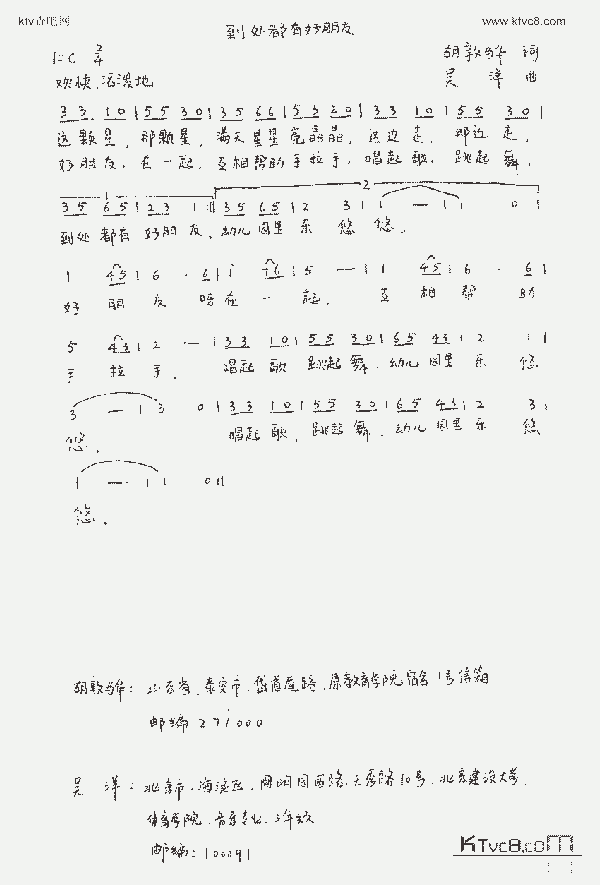 ktv吉他网
www.ktvc8.com
到处都有好朋友
1=C 2/4
胡敦骅 词
欢快、活泼地
吴 洋 曲
3 3 1 0 | 5 5 3 0 | 3 5 6 6 | 5 3 2 0 | 3 3 1 0 | 5 5 3 0 |
这颗星，那颗星，满天星星亮晶晶，这边走，那边走，
好朋友，在一起，互相帮助手拉手，唱起歌，跳起舞，
1 2
3 5 6 5 | 2 3 1 :|| 3 5 6 5 | 2 3 | 1 — | 1 0 |
到处都有好朋友，幼儿园里乐悠悠。
1 4 5 | 6 · 6 | i 6 | 5 — | 1 4 5 | 6 · 6 |
好朋友 在一起， 互相帮助
5 4 3 | 2 — | 3 3 1 0 | 5 5 3 0 | 6 5 4 3 | 2 1 |
手拉手， 唱起歌 跳起舞，幼儿园里乐悠
3 — | 3 0 | 3 3 1 0 | 5 5 3 0 | 6 5 4 3 | 2 3 |
悠。 唱起歌，跳起舞，幼儿园里乐悠
1 — | 1 0 ||
悠。
胡敦骅：山东省、泰安市、岱道庵路，原教育学院宿舍1号信箱
邮编 271000
吴 洋：北京市、海淀区，圆明园西路，天秀路10号，北京建设大学，
体育学院，音乐专业，
邮编：100091
KTvc8.com